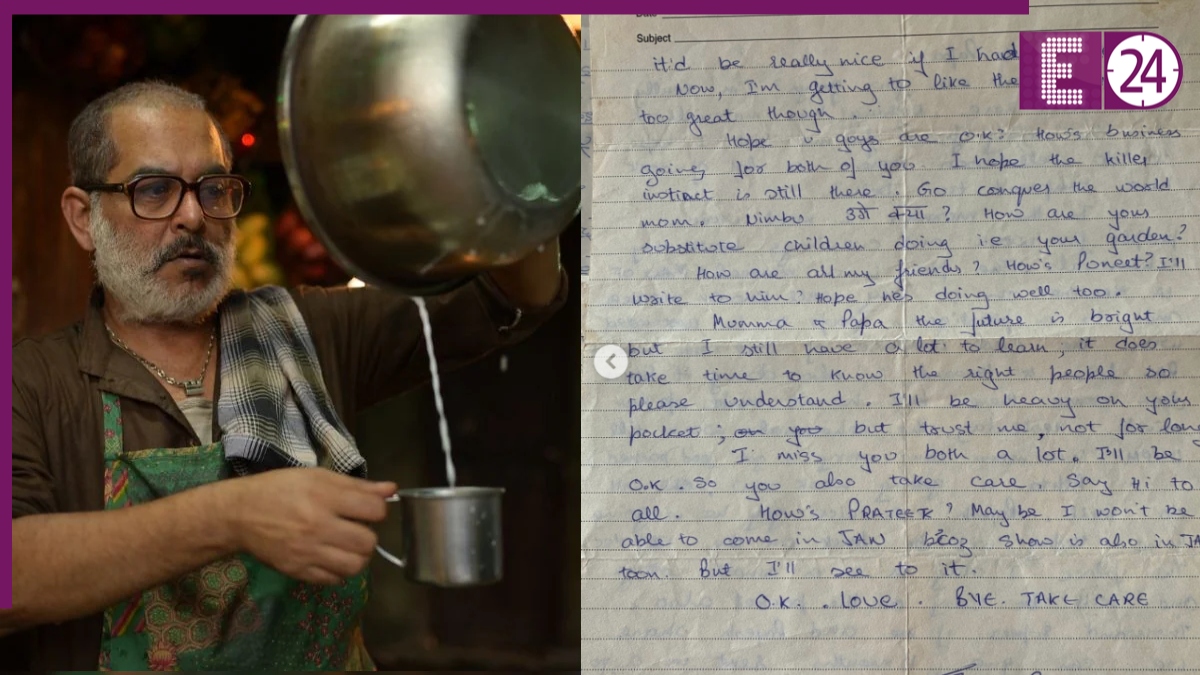 Subject
E 24
it'd be really nice if I had
Now, I'm getting to like the
too great though.
Hope u guys are O.K? How's business
going for both of you I hope the killer
instinct is still there. Go conquer the world
mom. Nimbu
? How are your
substitute children doing i.e your garden?
How are all my friends? How's Poneet? I'll
write to him? Hope he's doing well too.
Mumma & Papa the future is bright
but I still have a lot to learn, it does
take time to know the right people so
please understand. I'll be heavy on your
pocket; but trust me, not for long
I miss you both a lot. I'll be
O.K. So you also take care. Say Hi to
all. How's PRATEEK? May be I won't be
able to come in JAN b'coz show is also in JA
toon. But I'll see to it.
O.K. . love . BYE. TAKE CARE